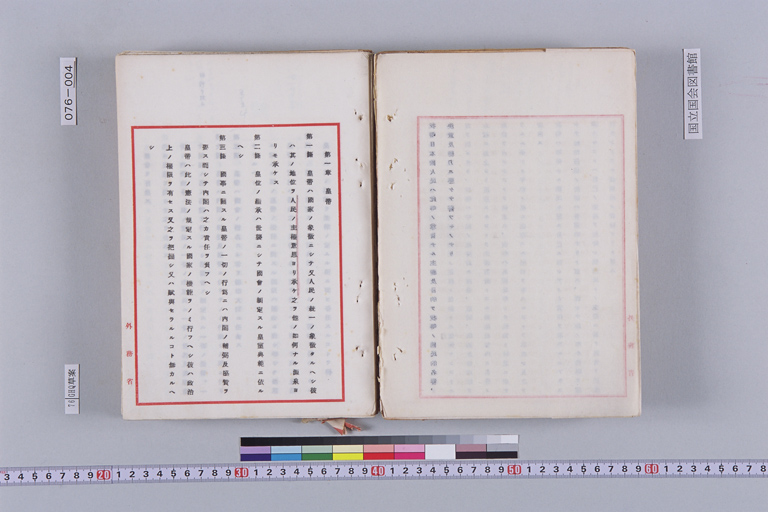 第一章　皇帝
第一條　皇帝ハ國家ノ象徵ニシテ又人民ノ統一ノ象徵タルヘシ彼
ハ其ノ地位ヲ人民ノ主權意思ヨリ承ケ之ヲ他ノ如何ナル源泉ヨ
リモ承ケス
第二條　皇位ノ繼承ハ世襲ニシテ國會ノ制定スル皇室典範ニ依ル
ヘシ
第三條　國事ニ關スル皇帝ノ一切ノ行爲ニハ內閣ノ輔弼及協贊ヲ
要ス而シテ內閣ハ之カ責任ヲ負フヘシ
皇帝ハ此ノ憲法ノ規定スル國家ノ機能ヲノミ行フヘシ彼ハ政治
上ノ權限ヲ有セス又之ヲ把握シ又ハ賦與セラルルコト無カルヘ
シ
外務省
076-004
国立国会図書館
GHQ草案